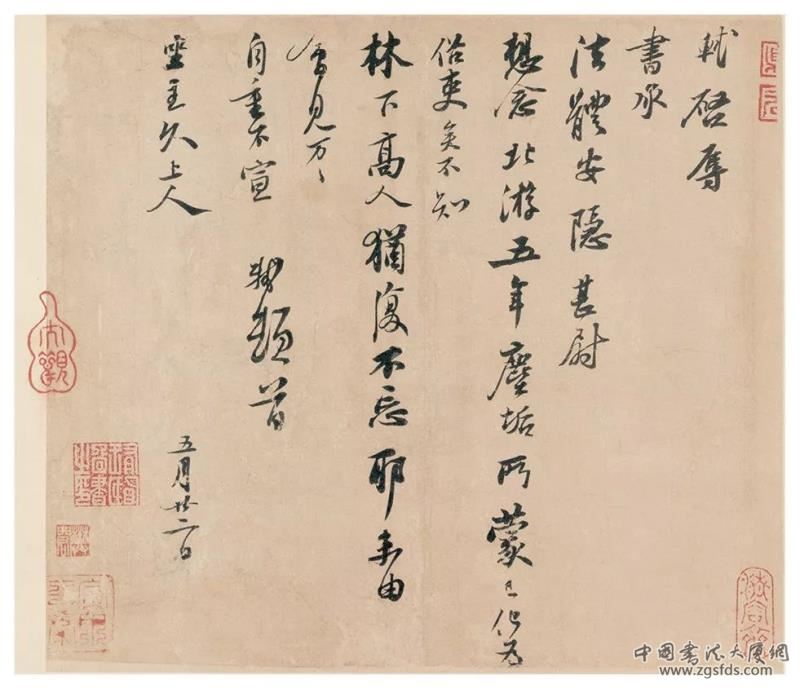 軾啓辱
書承
法體安隱甚尉
想念北游五年塵垢所蒙已化爲
俗吏矣不知
林下高人猶復不忘耶未由
會見万万
自重不宣 軾頓首
坐主久上人
五月廿二日
大觀
中國書法大厦網
www.zgsfds.com